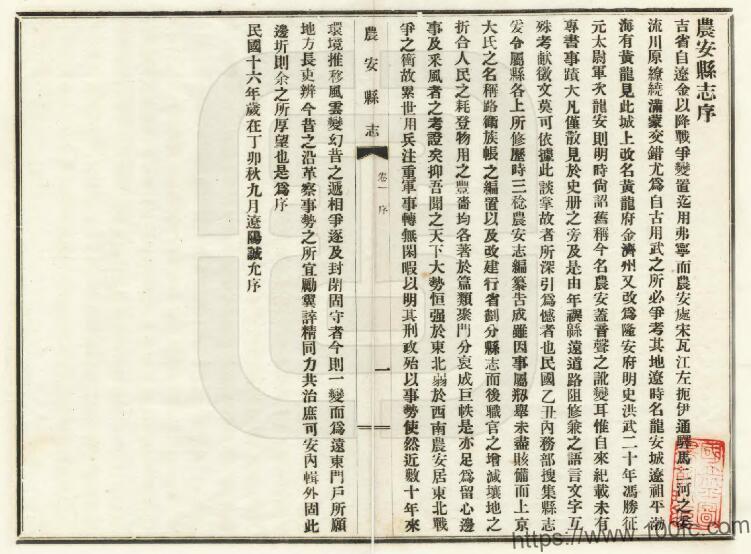 農安縣志序
吉省自遼金以降戰爭變置迄用弗寧而農安處宋瓦江左扼伊通驛馬二河之
流川原繚繞滿蒙交錯尤爲自古用武之所必爭考其地遼時名龍安城遼祖平渤
海有黃龍見此城上改名黃龍府金濟州又改爲隆安府明史洪武二十年馮勝征
元太尉軍次龍安則明時尙詔舊稱今名農安蓋音聲之訛變耳惟自來紀載未有
專書事蹟大凡僅散見於史册之旁及是由年禩縣遠道路阻修兼之語言文字互
殊考獻徵文莫可依據此談掌故者所深引爲憾者也民國乙丑內務部搜集縣志
爰令屬縣各上所修歷時三稔農安志編纂吿成雖因事屬剏舉未盡賅備而上京
大氏之名稱路衞族帳之編置以及改建行省劃分縣志而後職官之增減壤地之
折合人民之耗登物用之豐嗇均各著於篇類聚門分裒成巨帙是亦足爲留心邊
事及釆風者之考證矣抑吾聞之天下大勢恒强於東北弱於西南農安居東北戰
爭之衝故累世用兵注重軍事轉無閑暇以明其刑政殆以事勢使然近數十年來
農安縣志
卷一 序
一
環境推移風雲變幻昔之遞相爭逐及封閉固守者今則一變而爲遠東門戶所願
地方長吏辨今昔之沿革察事勢之所宜勵翼諄精同力共治庶可安內輯外固此
邊圻則余之所厚望也是爲序
民國十六年歲在丁卯秋九月遼陽誠允序
https://www.1001c.com